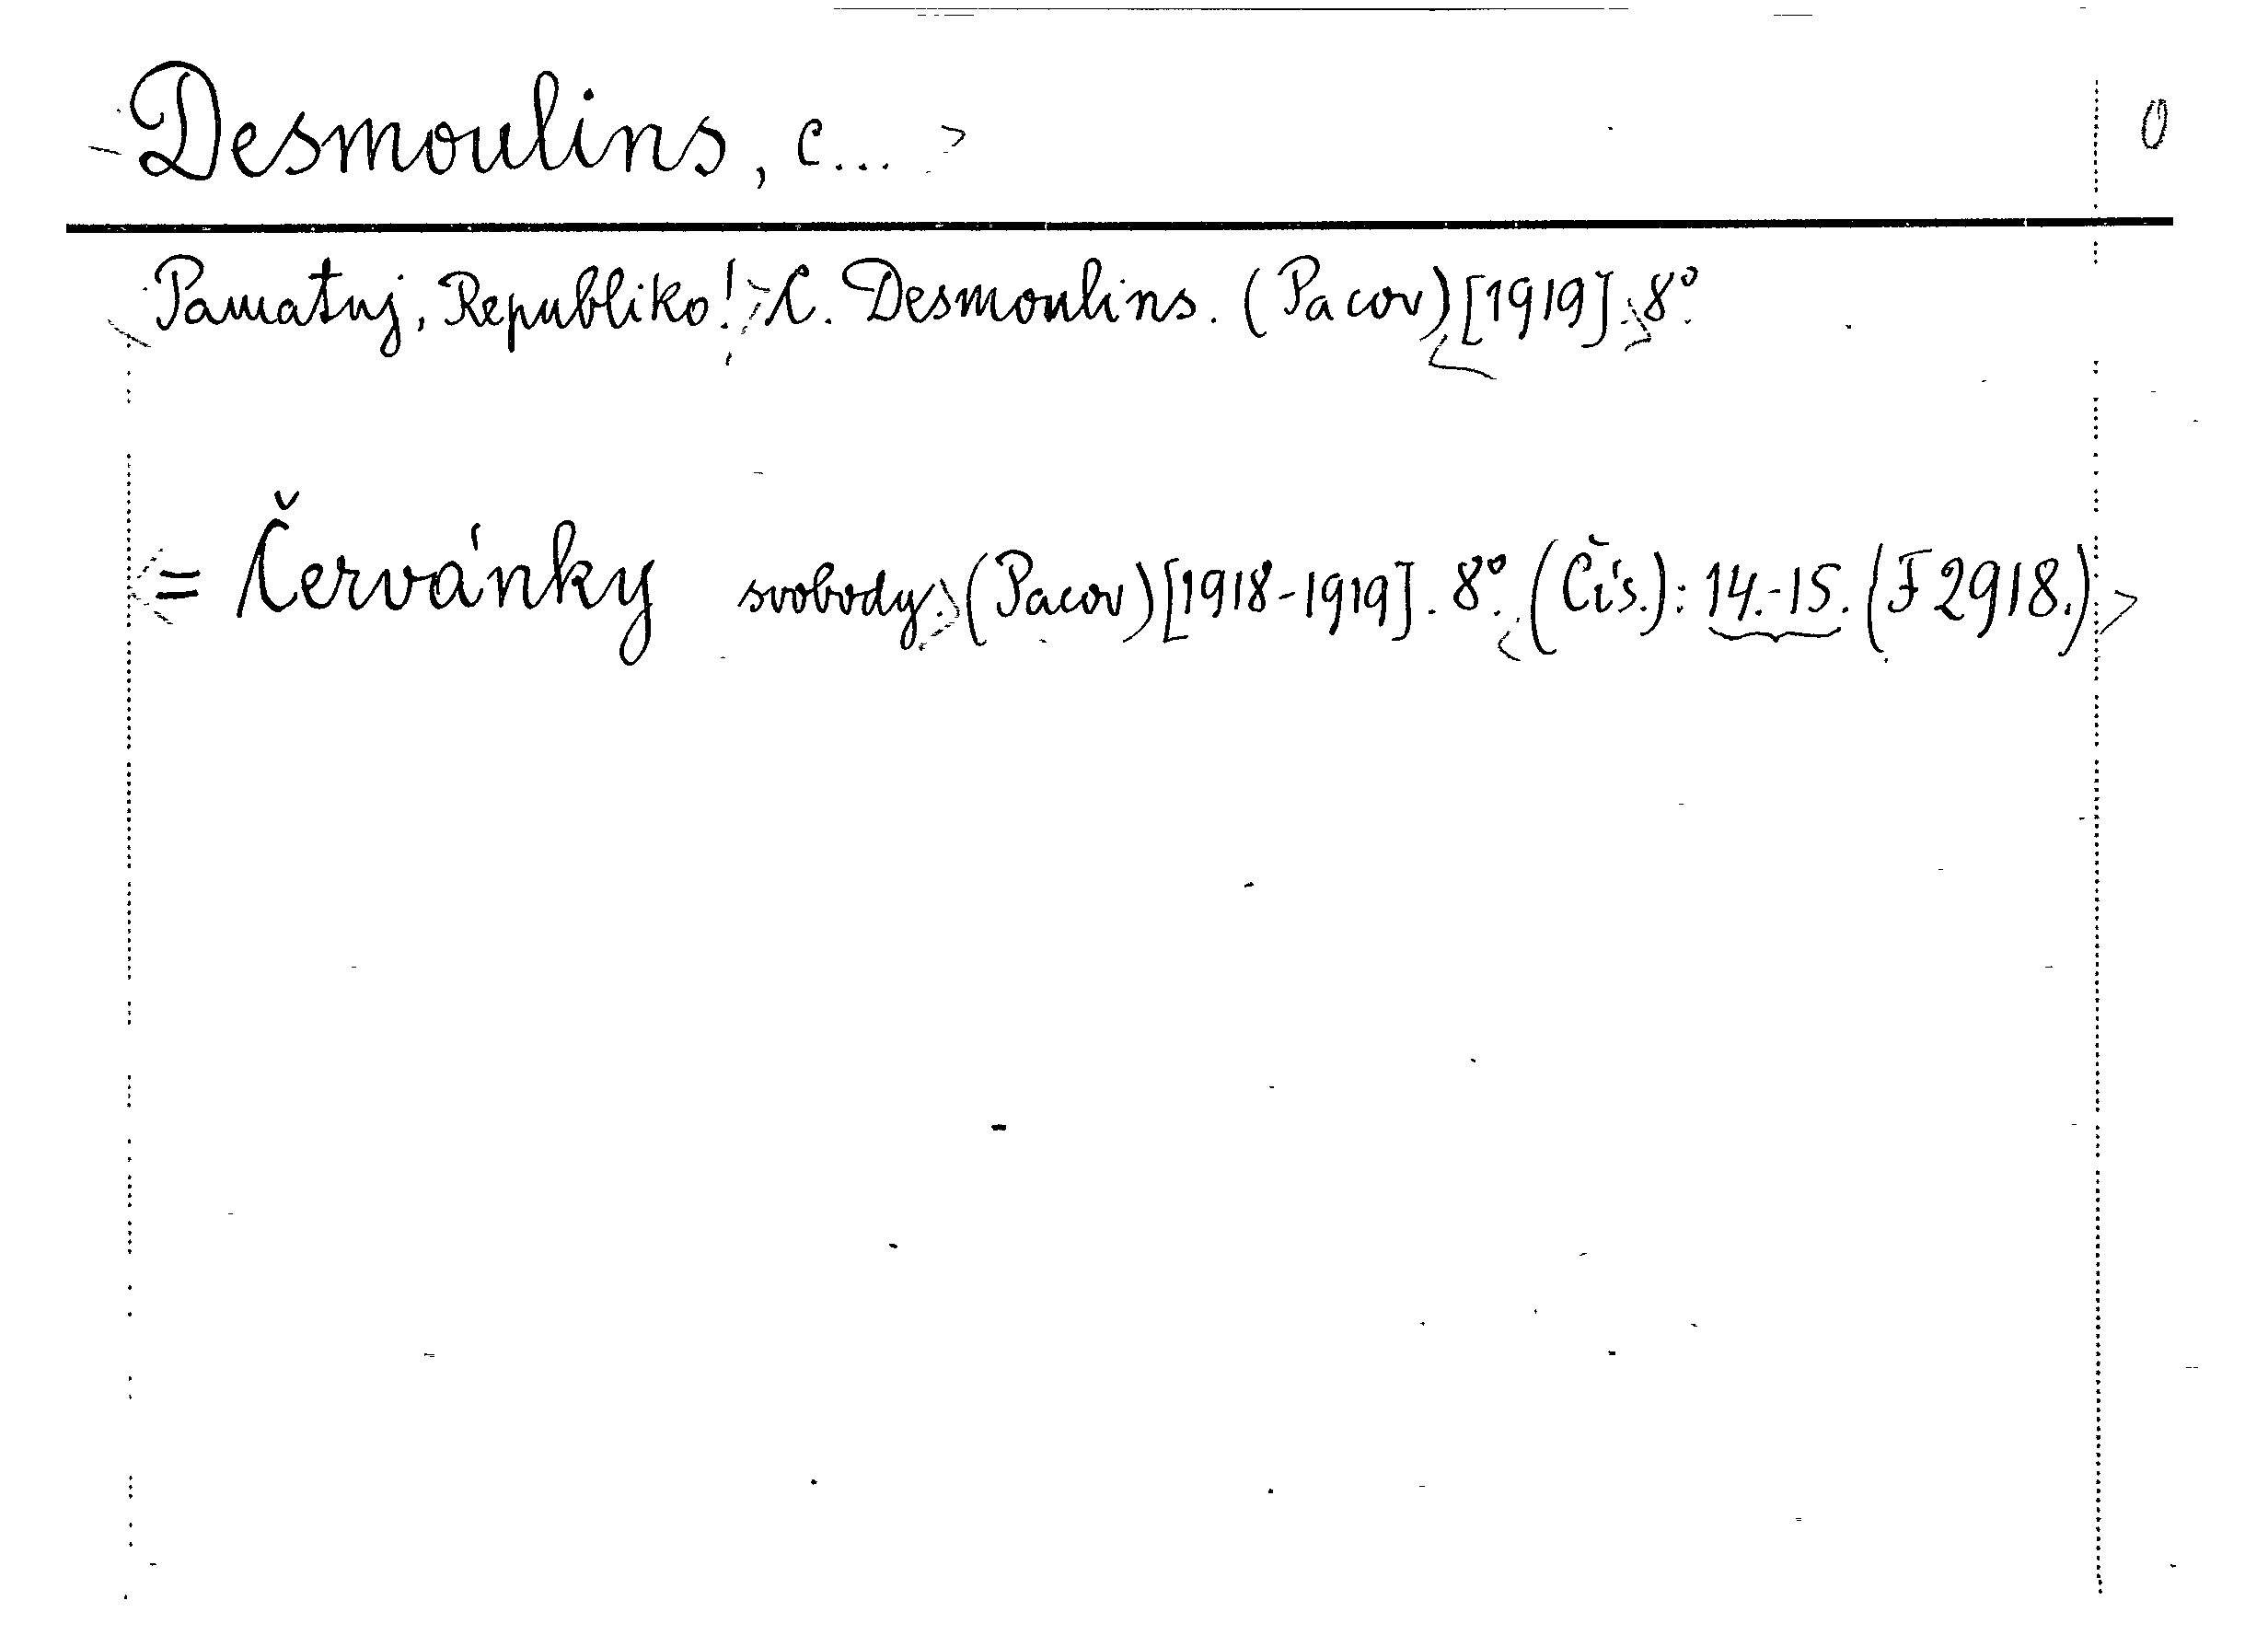 Desmoulins, C... 0
Pamatuj, Republiko! C. Desmoulins. (Pacov) [1919]. 8°.
= Červánky svobody. (Pacov) [1918-1919]. 8°. (Čís.): 14.-15. (F 2918.)